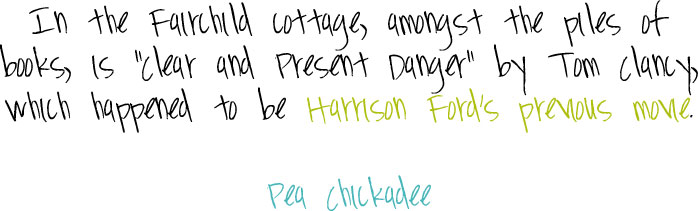 In the Fairchild cottage, amongst the piles of
books, is "Clear and Present Danger" by Tom Clancy,
which happened to be Harrison Ford's previous movie.
Pea Chickadee